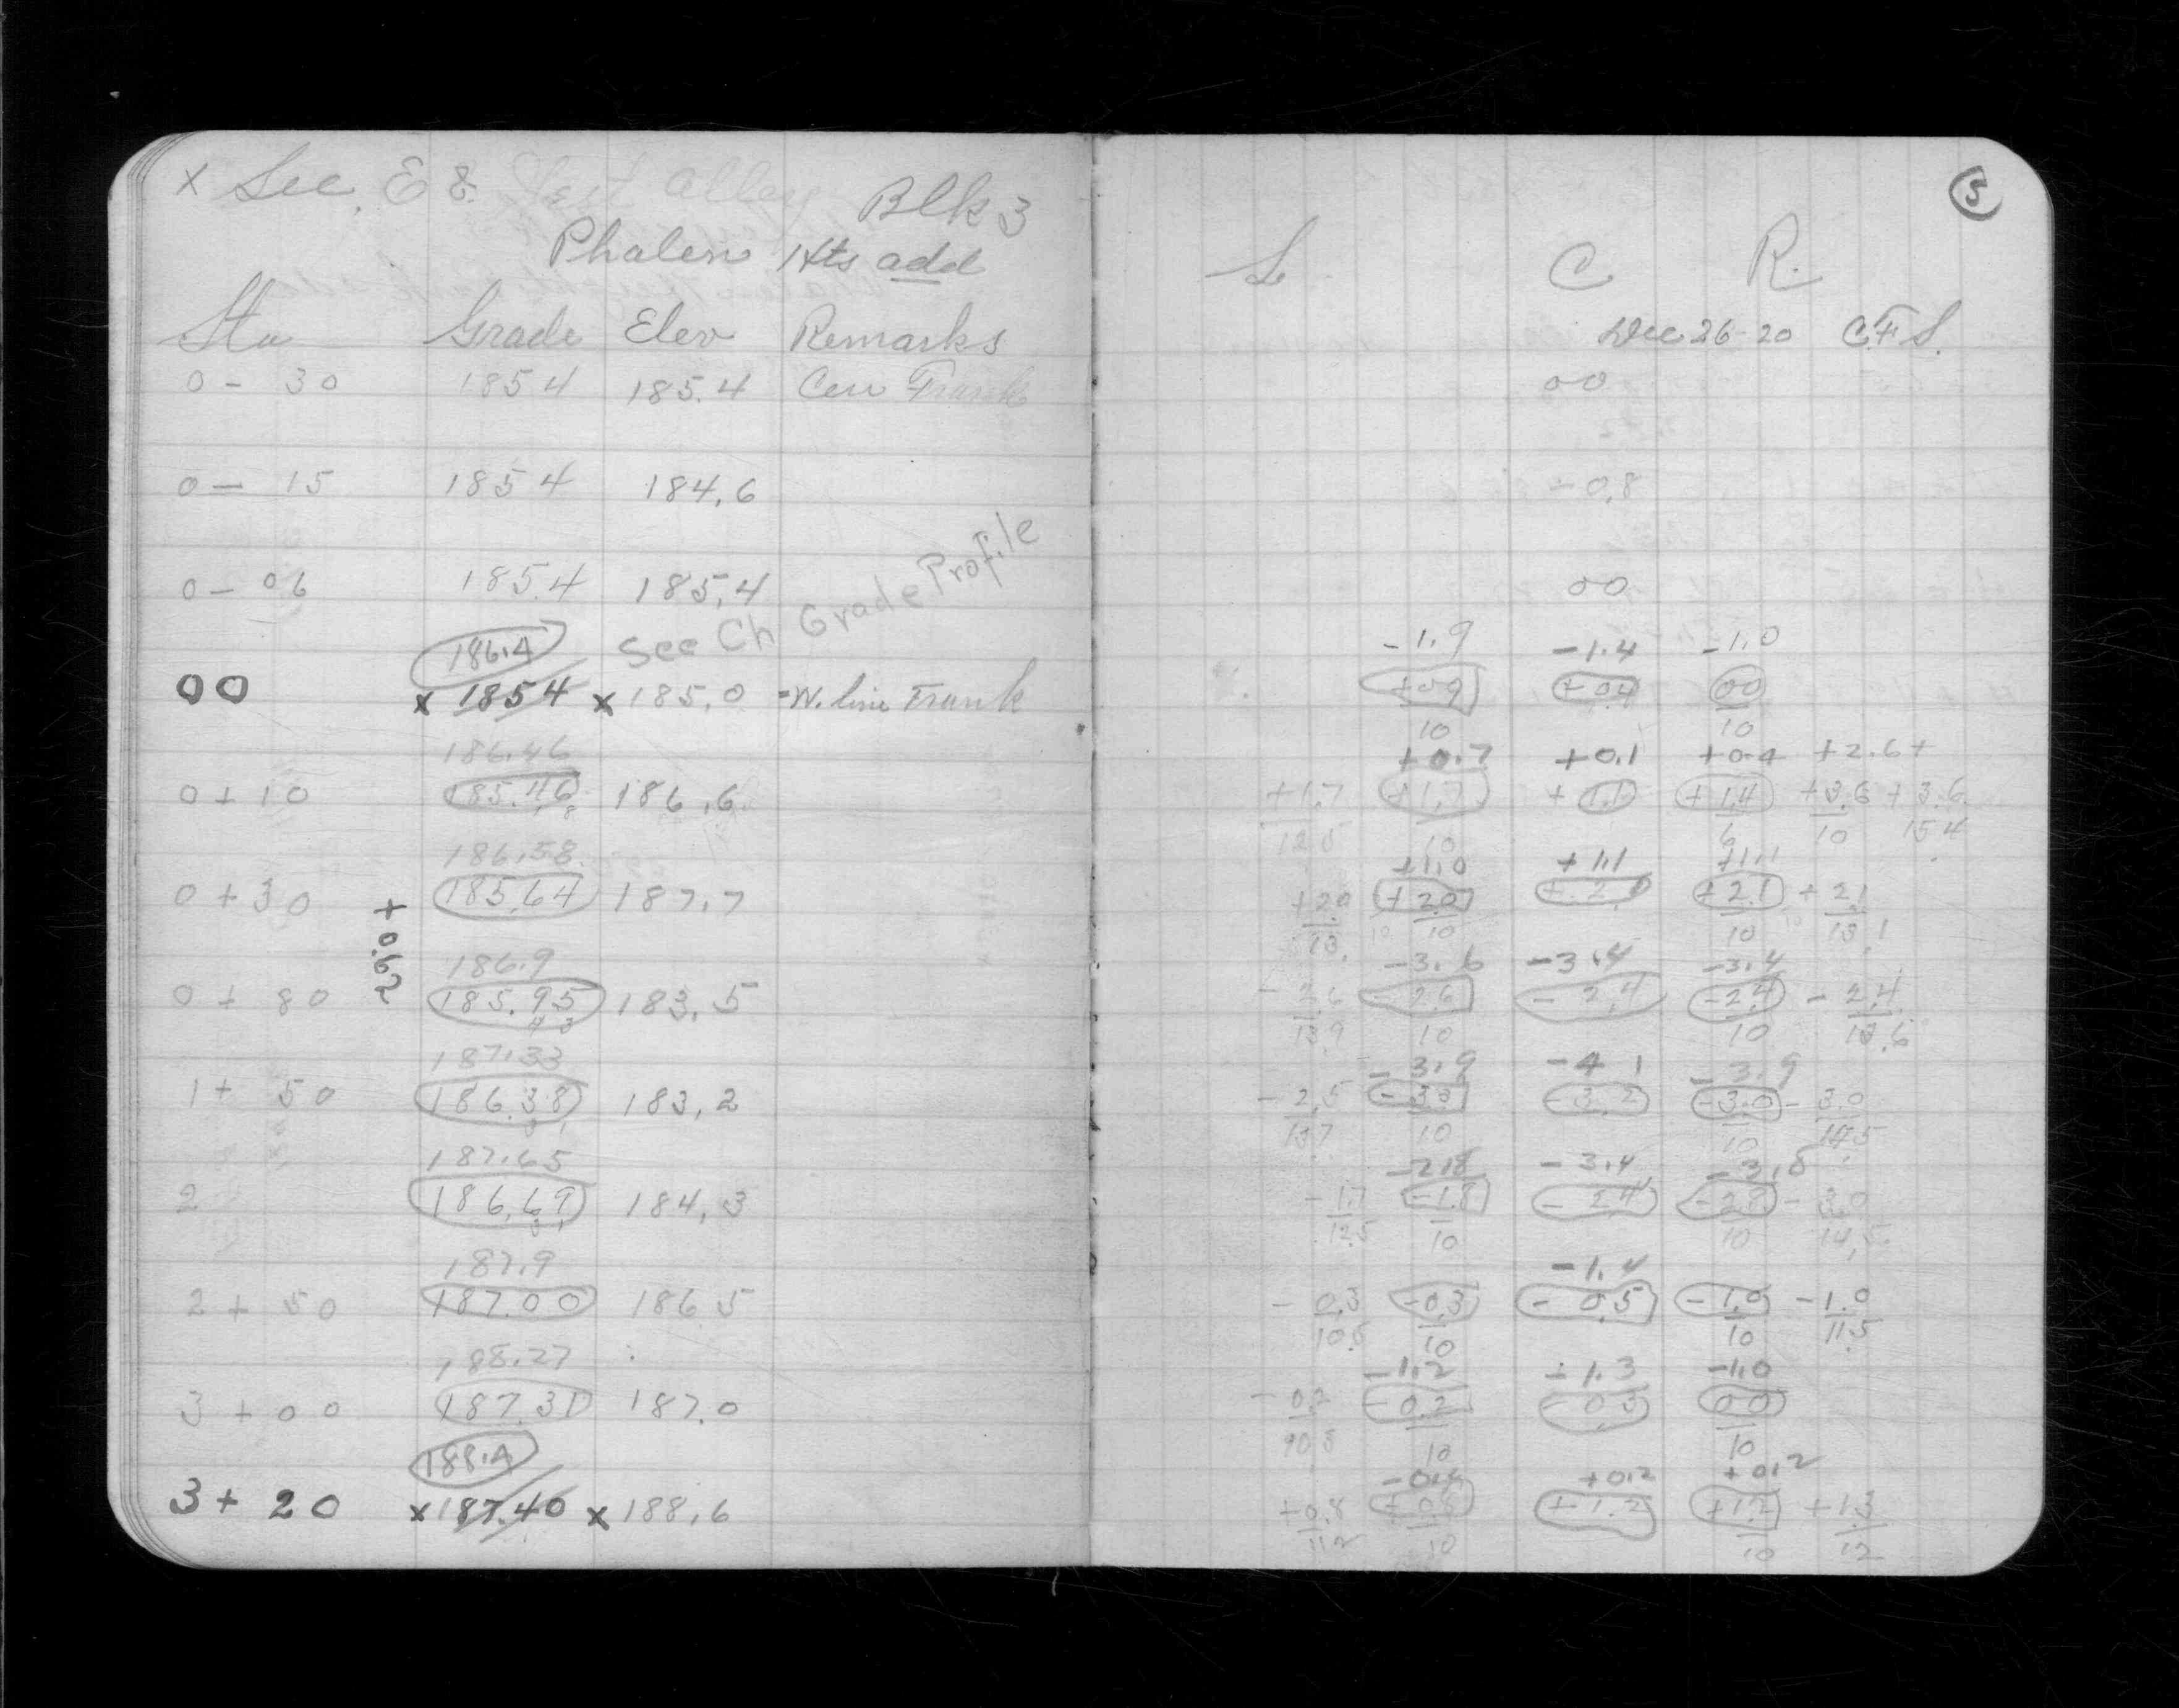 x Sec. E & West alley Blk 3
Phalen Hts add
Sta Grade Elev Remarks
0 - 30 185.4 185.4 Cen Frank
0 - 15 185 4 184.6
0 - 06 185.4 185.4
See Ch Grade Profile
186.4
00 x 185 4 x 185.0 - W. line Frank
186.46
0 + 10 185.46 186.6
186.58
0 + 30 185.64 187.7
+ 0.62
186.9
0 + 80 185.95 183.5
187.33
1 + 50 186.38 183.2
187.65
2 186.69 184.3
187.9
2 + 50 187.00 186.5
188.27
3 + 00 187.31 187.0
188.4
3 + 20 x 187.40 x 188.6
5
L C R.
Dec 26-20 C.F.S.
00
- 0.8
00
-1.9 -1.4 -1.0
+0.9 +0.4 00
10 10
+0.7 +0.1 +0.4 +2.6+
+1.7 +1.7 +1.1 +1.4 +3.6 +3.6
12.5 10 6 10 15.4
+1.0 +1.1 +1.1
+2.0 +2.0 +2.1 +2.1
13. 10 10 13.1
-3.6 -3.4 -3.4
-2.6 -2.6 -2.4 -2.4 -2.4
13.9 10 10 13.6
-3.9 -4 1 -3.9
-2.5 -3.0 -3.2 -3.0 -3.0
13.7 10 10 14.5
-2.8 -3.4 -3.8
-1.7 -1.8 -2.4 -2.8 -3.0
12.5 10 10 14.5
-1.4
-0.3 -0.3 -0.5 -1.0 -1.0
10.5 10 10 11.5
-1.2 -1.3 -1.0
-0.2 -0.2 -0.3 0.0
10 10
+0.2 +0.2
+0.8 +0.8 +1.2 +1.2 +1.3
11.2 10 10 12